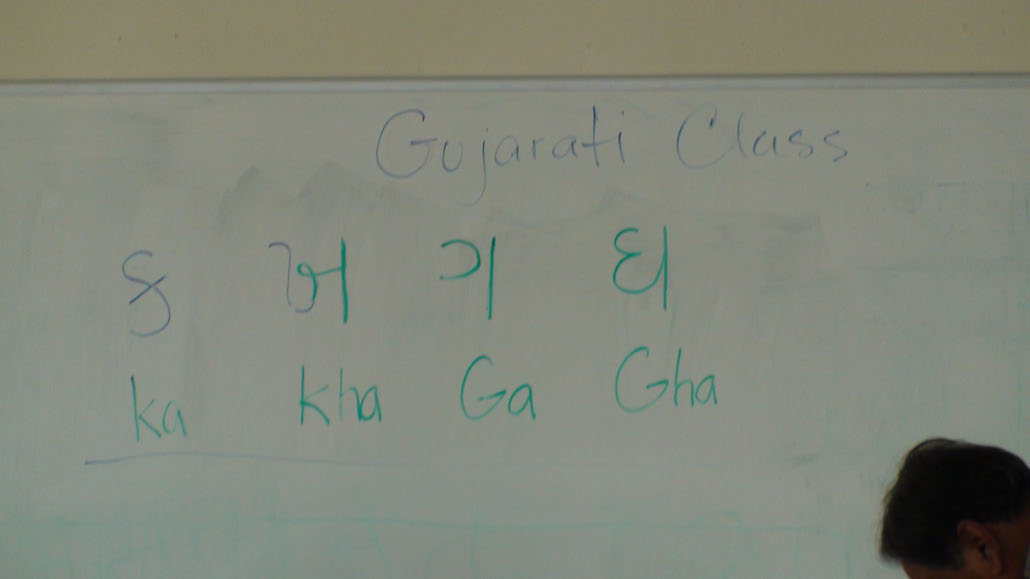 Gujarati Class
ક ખ ગ ઘ
ka kha Ga Gha